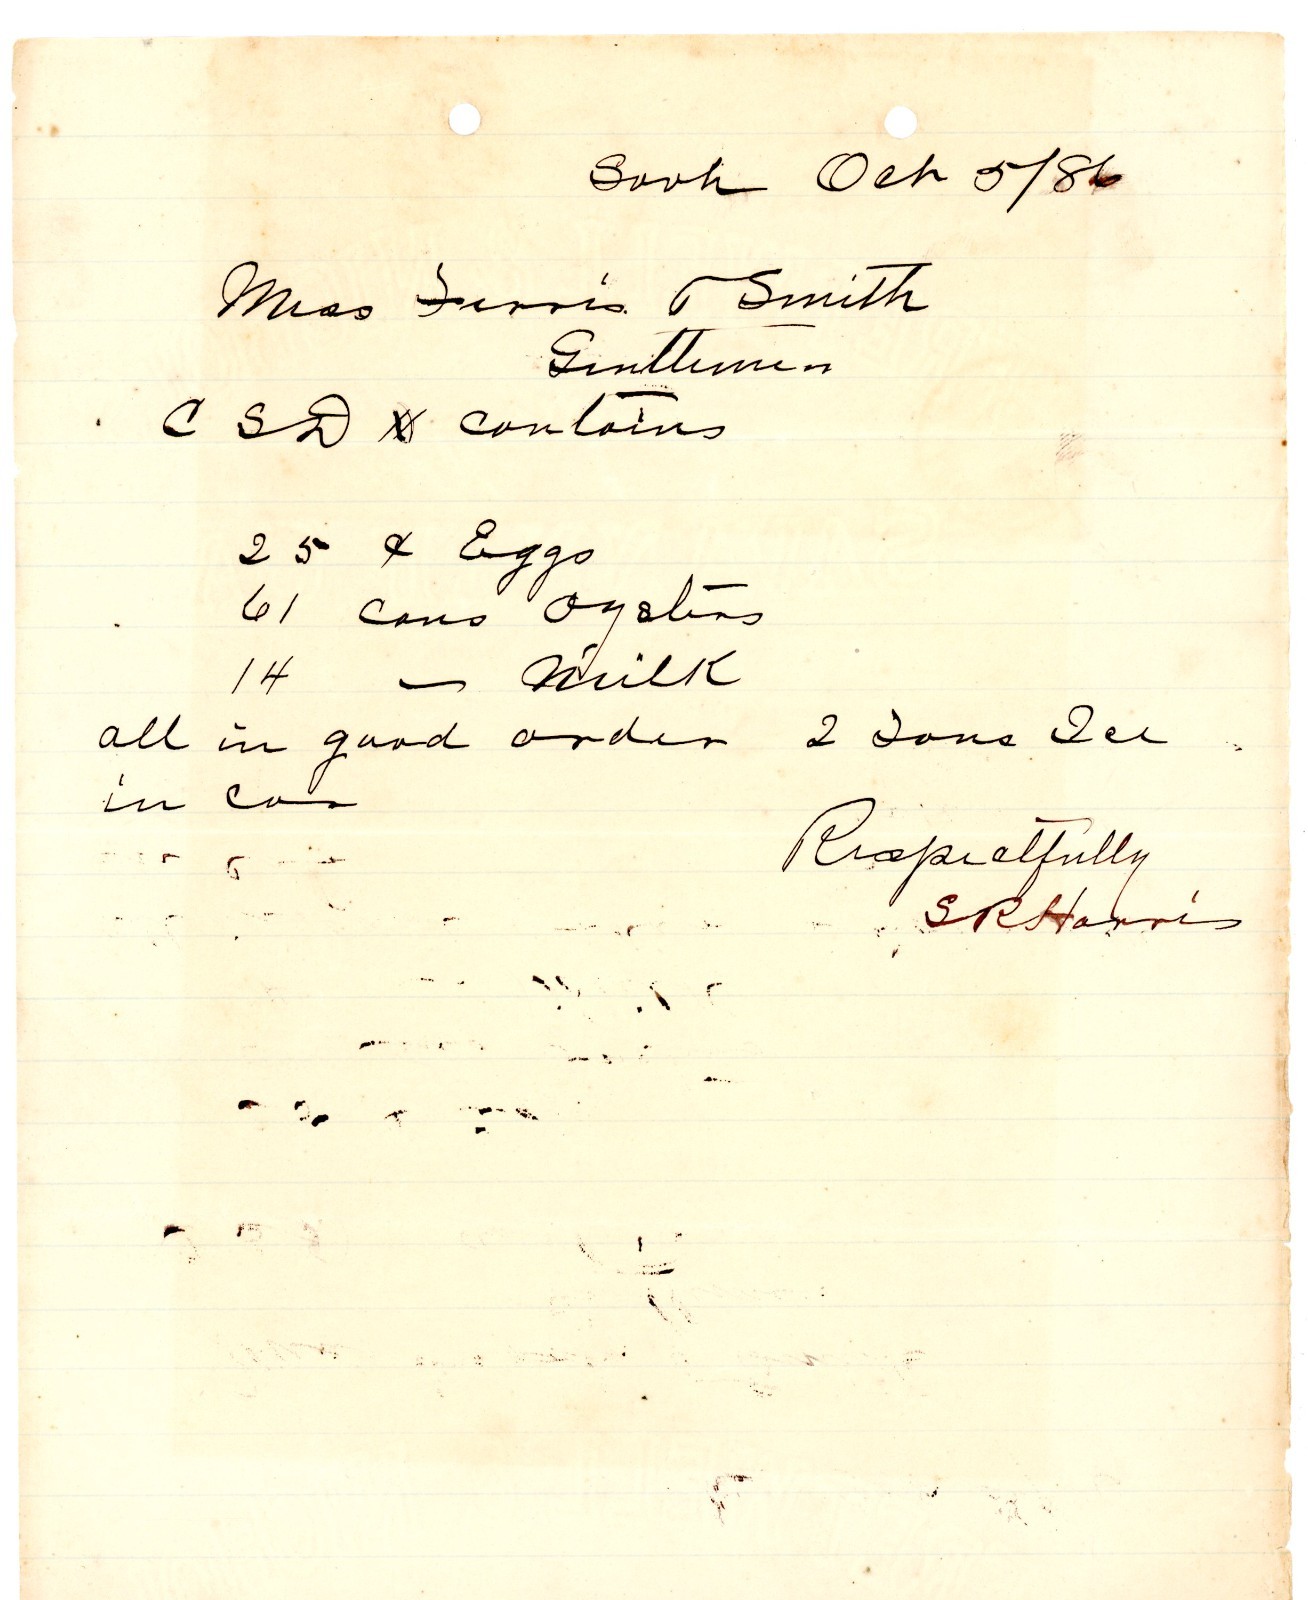 Oct 5/86
Mess Ferris & Smith
Gentlemen
C S D X contains
25 x Eggs
61 cans Oysters
14 — Milk
all in good order 2 Tons Ice
in car
Respectfully
S R Harris